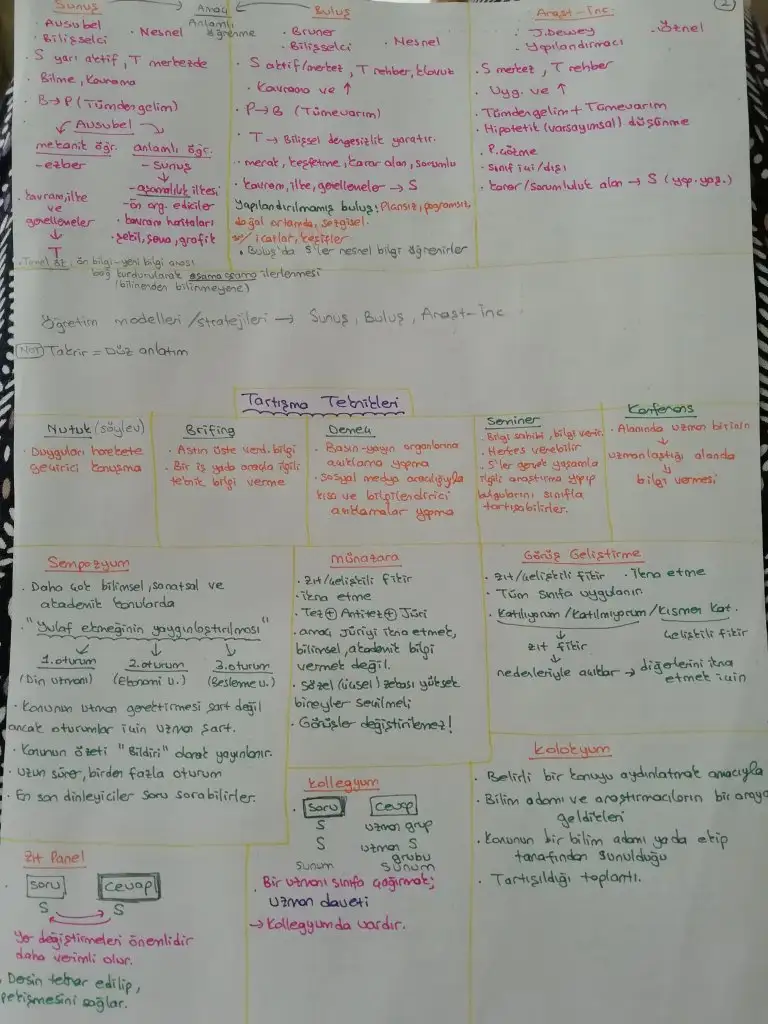 Sunuş
Amaç
Anlamlı öğrenme
Buluş
Araşt-İnc.
2
· Ausubel
· Bilişselci
· Nesnel
· S yarı aktif, T merkezde
· Bilme, Kavrama
· B→P (Tümdengelim)
· Ausubel
mekanik öğr.
anlamlı öğr.
-ezber
-Sunuş
-aşamalılık ilkesi
-ön org. ediciler
· kavram haritaları
· şekil, şema, grafik
· kavram, ilke
ve
genellemeler
T
· Temel öz. ön bilgi-yeni bilgi arası
bağ kurdurularak aşama aşama ilerlenmesi
(bilinenden bilinmeyene)
· Bruner
· Bilişselci
· Nesnel
· S aktif/merkez, T rehber, klavuz
· Kavrama ve ↑
· P→B (Tümevarım)
· T→ Bilişsel dengesizlik yaratır.
· merak, keşfetme, karar alan, sorumlu
· kavram, ilke, genellemeler → S
Yapılandırılmamış buluş: Plansız, programsız,
doğal ortamda, sezgisel.
icatlar, keşifler
· Buluş'da S'ler nesnel bilgi öğrenirler
· J.Dewey
· Yapılandırmacı
· Öznel
· S merkez, T rehber
· Uyg. ve ↑
· Tümdengelim + Tümevarım
· Hipotetik (varsayımsal) düşünme
· P.Çözme
· Sınıf içi/dışı
· karar/sorumluluk alan → S (yap. yaş.)
Öğretim modelleri/stratejileri → Sunuş, Buluş, Araşt-İnc
NOT Takrir = Düz anlatım
Tartışma Teknikleri
Nutuk (söylev)
· Duyguları harekete
geçirici konuşma
Brifing
· Astın üste verd. bilgi
· Bir iş yada araçla ilgili
teknik bilgi verme
Demeç
· Basın-yayın organlarına
açıklama yapma
· Sosyal medya aracılığıyla
kısa ve bilgilendirici
açıklamalar yapma
Seminer
· Bilgi sahibi, bilgi verir.
· Herkes verebilir
· S'ler gerçek yaşamla
ilgili araştırma yapıp
bulgularını sınıfla
tartışabilirler.
Konferans
· Alanında uzman birinin
uzmanlaştığı alanda
bilgi vermesi
Sempozyum
· Daha çok bilimsel, sanatsal ve
akademik konularda
· "Yulaf ekmeğinin yaygınlaştırılması"
1.oturum
2.oturum
3.oturum
(Din uzmanı)
(Ekonomi U.)
(Besleme U.)
· Konunun uzman gerektirmesi şart değil
ancak oturumlar için uzman şart.
· Konunun özeti "Bildiri" olarak yayınlanır.
· Uzun sürer, birden fazla oturum
· En son dinleyiciler soru sorabilirler.
münazara
· Zıt/Çelişkili fikir
· İkna etme
· Tez + Antitez + Jüri
· amaç jüriyi ikna etmek,
bilimsel, akademik bilgi
vermek değil.
· Sözel (dilsel) zekası yüksek
bireyler seçilmeli
· Görüşler değiştirilemez!
Görüş Geliştirme
· Zıt/Çelişkili fikir
· İkna etme
· Tüm sınıfa uygulanır.
· Katılıyorum/Katılmıyorum/Kısmen Kat.
zıt fikir
Çelişkili fikir
nedenleriyle açıklar → diğerlerini ikna
etmek için
Kollegyum
Soru
Cevap
S
uzman grup
S
uzman S
grubu
Sunum
Sunum
· Bir uzmanı sınıfa çağırmak;
uzman daveti
→ Kollegyumda vardır.
Kolokyum
· Belirli bir konuyu aydınlatmak amacıyla
· Bilim adamı ve araştırmacıların bir araya
geldikleri
· Konunun bir bilim adamı yada ekip
tarafından sunulduğu
· Tartışıldığı toplantı.
Zıt Panel
· Soru
Cevap
S
S
Yer değiştirmeleri önemlidir
daha verimli olur.
· Dersin tekrar edilip,
pekişmesini sağlar.